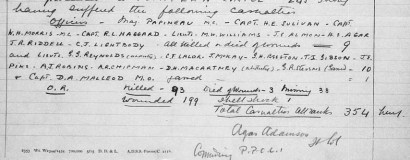 having suffered the following Casualties
Officers - Maj PAPINEAU MC. - CAPT. H.E. SULIVAN - CAPT.
W.H. MORRIS - MC - CAPT. R.L. HAGGARD - LIEUTS. M.W. WILLIAMS - J.E. ALMON - H.E. AGAR
J.R. RIDDELL - C.J. LIGHTBODY - All killed or died of wounds - 9
and LIEUTS. S.S. REYNOLDS J.F. LALOR - J. MCKAY - J.S. T.I. GIBSON - J.
A.J. ROBINS - D.H. MACARTNEY S.A. STEVENS - 10
+ Capt. D.A. MACLEOD M.O. - 1
O.R. Killed - 93 Died of wounds - 3 Missing 38
Wounded 199 Shell shock 1
Total Casualties All ranks 354 
Agar Adamson
Lt Col
Comndg P.P.C.L.I